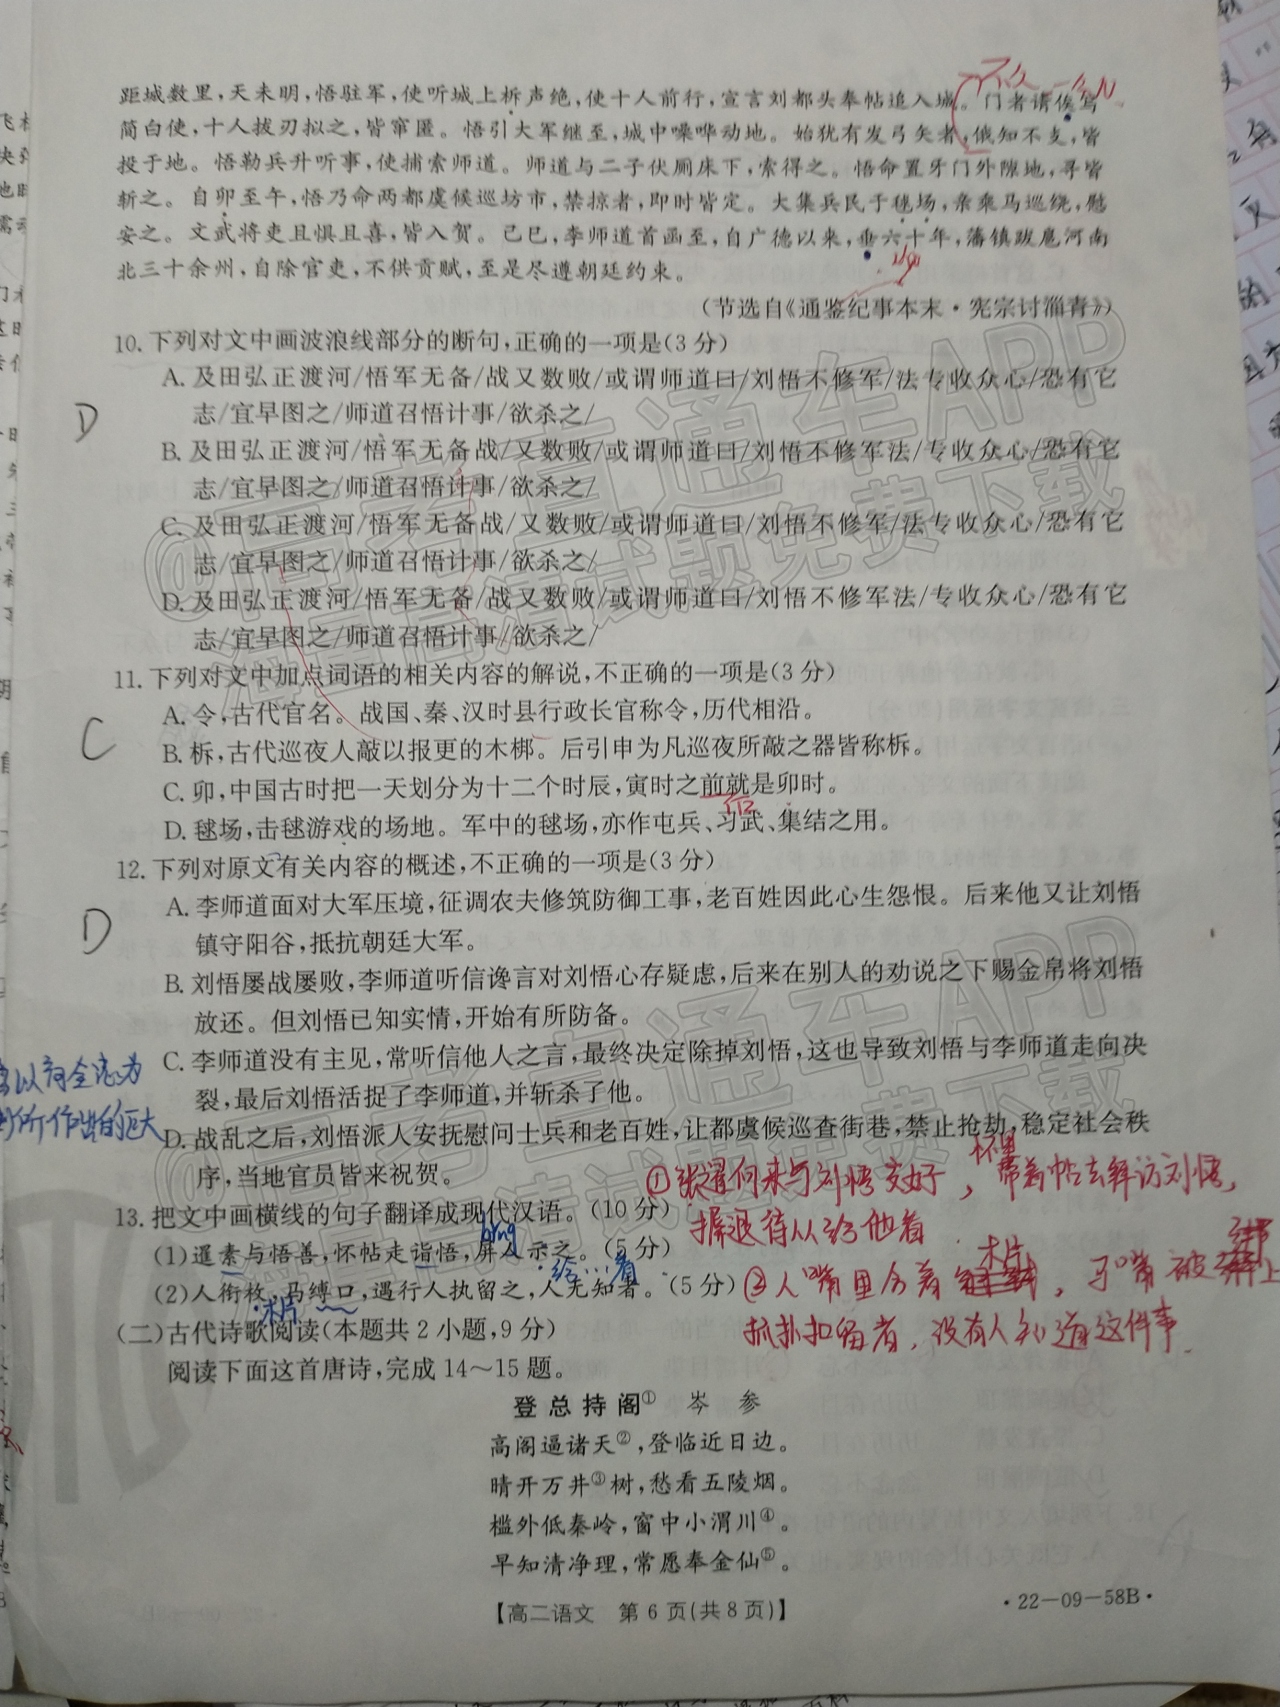 距城数里，天未明，悟驻军，使听城上柝声绝，使十人前行，宣言刘都头奉帖追入城。门者请俟写
简白使，十人拔刃拟之，皆窜匿。悟引大军继至，城中噪哗动地。始犹有发弓矢者，俄知不支，皆
投于地。悟勒兵升听事，使捕索师道。师道与二子伏厕床下，索得之。悟命置牙门外隙地，寻皆
斩之。自卯至午，悟乃命两都虞候巡坊市，禁掠者，即时皆定。大集兵民于毬场，亲乘马巡绕，慰
安之。文武将吏且惧且喜，皆入贺。己巳，李师道首函至，自广德以来，垂六十年，藩镇跋扈河南
北三十余州，自除官吏，不供贡赋，至是尽遵朝廷约束。
（节选自《通鉴纪事本末·宪宗讨淄青》）
10. 下列对文中画波浪线部分的断句，正确的一项是（3分）
A. 及田弘正渡河/悟军无备/战又数败/或谓师道曰/刘悟不修军/法专收众心/恐有它
志/宜早图之/师道召悟计事/欲杀之/
D
B. 及田弘正渡河/悟军无备战/又数败/或谓师道曰/刘悟不修军法/专收众心/恐有它
志/宜早图之/师道召悟计事/欲杀之/
C. 及田弘正渡河/悟军无备战/又数败/或谓师道曰/刘悟不修军/法专收众心/恐有它
志/宜早图之/师道召悟计事/欲杀之/
D. 及田弘正渡河/悟军无备/战又数败/或谓师道曰/刘悟不修军法/专收众心/恐有它
志/宜早图之/师道召悟计事/欲杀之/
11. 下列对文中加点词语的相关内容的解说，不正确的一项是（3分）
A. 令，古代官名。战国、秦、汉时县行政长官称令，历代相沿。
C
B. 柝，古代巡夜人敲以报更的木梆。后引申为凡巡夜所敲之器皆称柝。
C. 卯，中国古时把一天划分为十二个时辰，寅时之前就是卯时。
后
D. 毬场，击毬游戏的场地。军中的毬场，亦作屯兵、习武、集结之用。
12. 下列对原文有关内容的概述，不正确的一项是（3分）
A. 李师道面对大军压境，征调农夫修筑防御工事，老百姓因此心生怨恨。后来他又让刘悟
D
镇守阳谷，抵抗朝廷大军。
B. 刘悟屡战屡败，李师道听信谗言对刘悟心存疑虑，后来在别人的劝说之下赐金帛将刘悟
放还。但刘悟已知实情，开始有所防备。
C. 李师道没有主见，常听信他人之言，最终决定除掉刘悟，这也导致刘悟与李师道走向决
裂，最后刘悟活捉了李师道，并斩杀了他。
D. 战乱之后，刘悟派人安抚慰问士兵和老百姓，让都虞候巡查街巷，禁止抢劫，稳定社会秩
序，当地官员皆来祝贺。
13. 把文中画横线的句子翻译成现代汉语。（10分）
①张暹向来与刘悟交好，怀里带着帖去拜访刘悟，
摒退侍从给他看
(1)暹素与悟善，怀帖走诣悟，屏人示之。（5分）
bǐng
给……看
(2)人衔枚，马缚口，遇行人执留之，人无知者。（5分）
木片
②人嘴里含着木片，马嘴被绑上
抓扑扣留者，没有人知道这件事
（二）古代诗歌阅读（本题共2小题，9分）
阅读下面这首唐诗，完成14～15题。
登总持阁① 岑 参
高阁逼诸天②，登临近日边。
晴开万井③树，愁看五陵烟。
槛外低秦岭，窗中小渭川④。
早知清净理，常愿奉金仙⑤。
【高二语文 第6页（共8页）】
·22-09-58B·
@高考直通车APP
海量高清试题免费下载
@高考直通车APP
海量高清试题免费下载